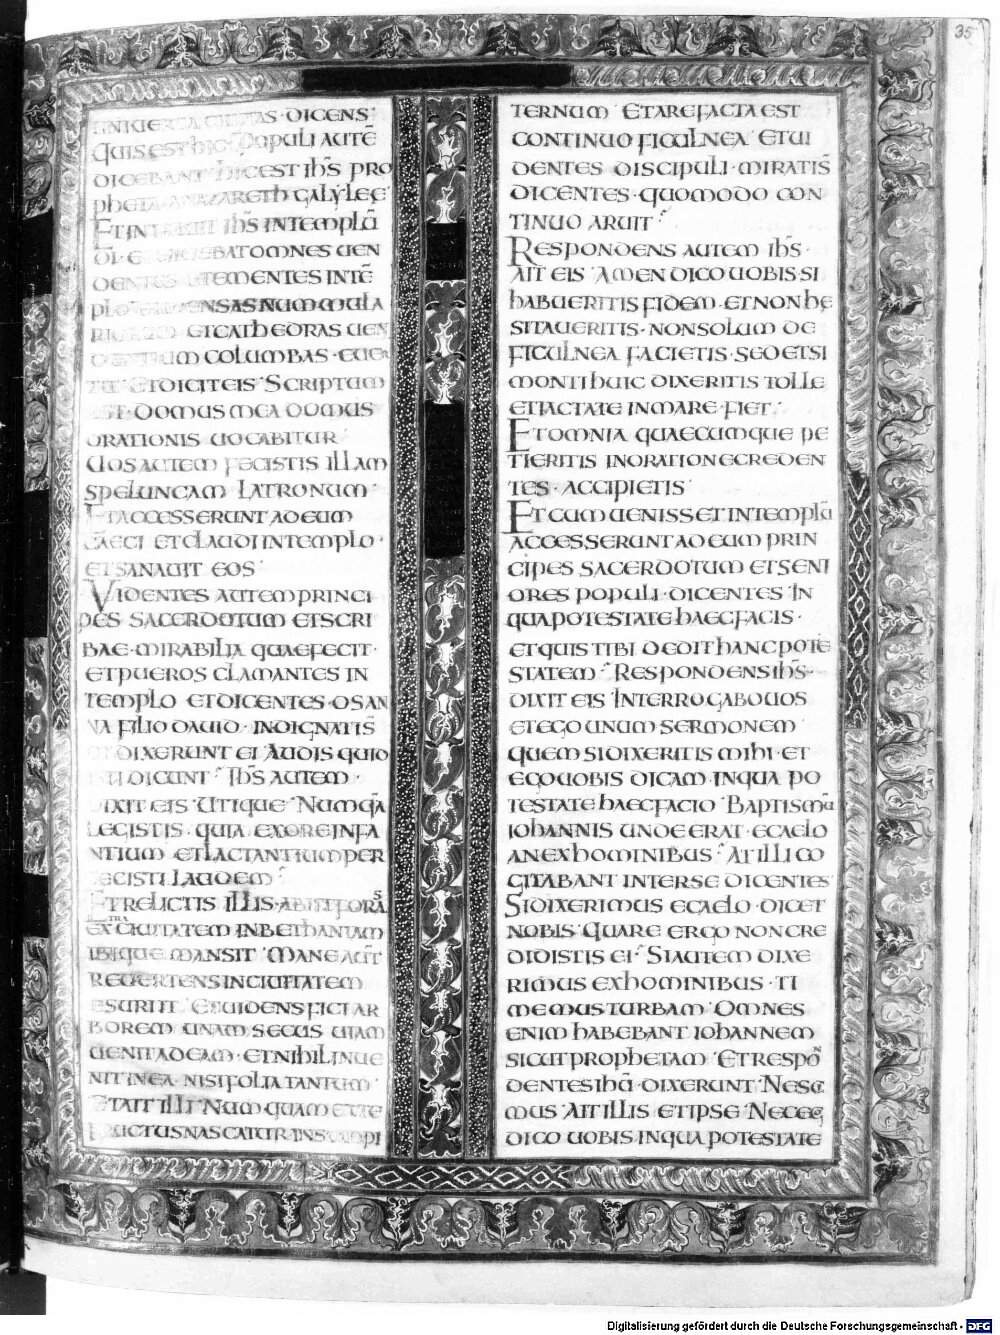 35
UNIUERSA CIUITAS · DICENS
QUIS EST HIC · POPULI AUTĒ
DICEBANT HIC EST IHS̄ PRO
PHETA A NAZARETH GALYLEĘ
ET INTRAUIT IHS̄ IN TEMPLŪ
DI · ET EICIEBAT OMNES UEN
DENTES ET EMENTES IN TĒ
PLO ET MENSAS NUMMULA
RIORUM ET CATHEDRAS UEN
DENTIUM COLUMBAS · EUER
TIT ET DICIT EIS SCRIPTUM
EST · DOMUS MEA DOMUS
ORATIONIS UOCABITUR
UOS AUTEM FECISTIS ILLAM
SPELUNCAM LATRONUM ·
ET ACCESSERUNT AD EUM
CAECI ET CLAUDI IN TEMPLO ·
ET SANAUIT EOS
VIDENTES AUTEM PRINCI
PES SACERDOTUM ET SCRI
BAE · MIRABILIA QUAE FECIT ·
ET PUEROS CLAMANTES IN
TEMPLO ET DICENTES · OSAN
NA FILIO DAUID · INDIGNATIS̄
ET DIXERUNT EI AUDIS QUID
ISTI DICUNT IHS̄ AUTEM ·
DIXIT EIS · UTIQUE NUMQ̄A
LEGISTIS · QUIA EX ORE INFA
NTIUM ET LACTANTIUM PER
FECISTI LAUDEM
ET RELICTIS ILLIS · ABIIT FORAS
EXTRA CIUITATEM IN BETHANIAM
IBIQUE MANSIT MANE AUT̄
REUERTENS IN CIUITATEM
ESURIIT ET UIDENS FICI AR
BOREM UNAM SECUS UIAM
UENIT AD EAM · ET NIHIL INUE
NIT IN EA NISI FOLIA TANTUM ·
ET AIT ILLI NUMQUAM EX TE
FRUCTUS NASCATUR IN SEMPI
TERNUM ET AREFACTA EST
CONTINUO FICULNEA ET UI
DENTES DISCIPULI · MIRATIS̄
DICENTES · QUOMODO CON
TINUO ARUIT
RESPONDENS AUTEM IHS̄ ·
AIT EIS AMEN DICO UOBIS · SI
HABUERITIS FIDEM · ET NON HĘ
SITAUERITIS · NON SOLUM DE
FICULNEA FACIETIS · SED ET SI
MONTI HUIC DIXERITIS TOLLE
ET IACTA TE IN MARE · FIET
ET OMNIA QUAECUMQUE PE
TIERITIS IN ORATIONE CREDEN
TES · ACCIPIETIS
ET CUM UENISSET IN TEMPLŪ
ACCESSERUNT AD EUM PRIN
CIPES SACERDOTUM ET SENI
ORES POPULI · DICENTES IN
QUA POTESTATE HAEC FACIS ·
ET QUIS TIBI DEDIT HANC POTE
STATEM RESPONDENS IHS̄
DIXIT EIS INTERROGABO UOS
ET EGO UNUM SERMONEM
QUEM SI DIXERITIS MIHI · ET
EGO UOBIS DICAM · IN QUA PO
TESTATE HAEC FACIO BAPTISMŪ
IOHANNIS UNDE ERAT · E CAELO
AN EX HOMINIBUS AT ILLI CO
GITABANT INTER SE DICENTES
SI DIXERIMUS E CAELO · DICET
NOBIS QUARE ERGO NON CRE
DIDISTIS EI SI AUTEM DIXE
RIMUS EX HOMINIBUS · TI
MEMUS TURBAM OMNES
ENIM HABEBANT IOHANNEM
SICUT PROPHETAM ET RESPOÑ
DENTES IHŪ · DIXERUNT NESCI
MUS AIT ILLIS ET IPSE NEC EG
DICO UOBIS IN QUA POTESTATE
Digitalisierung gefördert durch die Deutsche Forschungsgemeinschaft - DFG